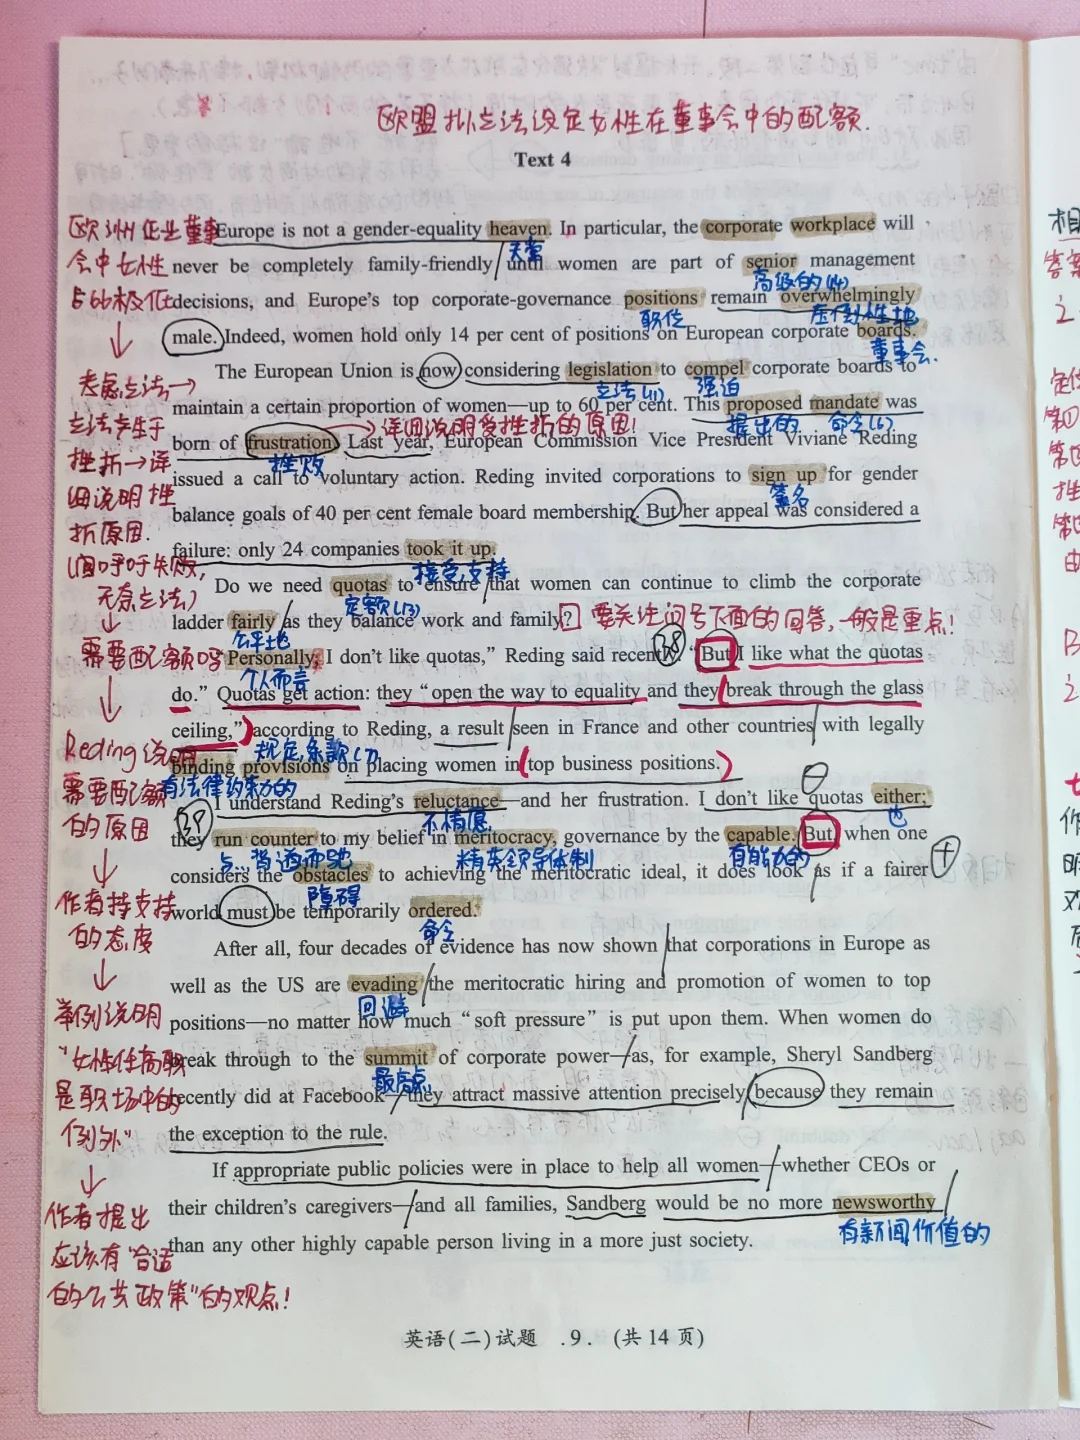 欧盟拟立法设定女性在董事会中的配额.
Text 4
欧洲企业董事 Europe is not a gender-equality heaven. In particular, the corporate workplace will
天堂
会中女性 never be completely family-friendly until women are part of senior management
高级的(4)
占的极低 decisions, and Europe's top corporate-governance positions remain overwhelmingly
职位 压倒性地
male. Indeed, women hold only 14 per cent of positions on European corporate boards.
董事会.
考虑立法→ The European Union is now considering legislation to compel corporate boards to
立法(11) 强迫
maintain a certain proportion of women—up to 60 per cent. This proposed mandate was
提出的 命令(6)
立法产生于 born of frustration. Last year, European Commission Vice President Viviane Reding
→详细说明受挫折的原因!
挫败
挫折→详 issued a call to voluntary action. Reding invited corporations to sign up for gender
签名
细说明挫 balance goals of 40 per cent female board membership. But her appeal was considered a
折原因. failure: only 24 companies took it up.
接受,支持
(因呼吁失败, Do we need quotas to ensure that women can continue to climb the corporate
定额(13)
无奈立法) ladder fairly as they balance work and family? 要关注问号下面的回答,一般是重点!
公平地
需要配额吗 "Personally, I don't like quotas," Reding said recently. "But I like what the quotas
38
个人而言
do." Quotas get action: they "open the way to equality and they break through the glass
ceiling," according to Reding, a result seen in France and other countries with legally
规定,条款(7)
Reding说明 binding provisions on placing women in top business positions.
需要配额 有法律约束力的
的原因 I understand Reding's reluctance—and her frustration. I don't like quotas either;
不情愿 也
39
they run counter to my belief in meritocracy, governance by the capable. But, when one
与..背道而驰 精英领导体制 有能力的
considers the obstacles to achieving the meritocratic ideal, it does look as if a fairer
障碍
作者持支持 world must be temporarily ordered.
命令
的态度 After all, four decades of evidence has now shown that corporations in Europe as
well as the US are evading the meritocratic hiring and promotion of women to top
回避
举例说明 positions—no matter how much "soft pressure" is put upon them. When women do
"女性任高职 break through to the summit of corporate power—as, for example, Sheryl Sandberg
最高点
是职场中的 recently did at Facebook—they attract massive attention precisely because they remain
例外" the exception to the rule.
If appropriate public policies were in place to help all women—whether CEOs or
作者提出 their children's caregivers—and all families, Sandberg would be no more newsworthy
有新闻价值的
应该有"合适 than any other highly capable person living in a more just society.
的公共政策"的观点!
英语(二)试题 .9. (共14页)